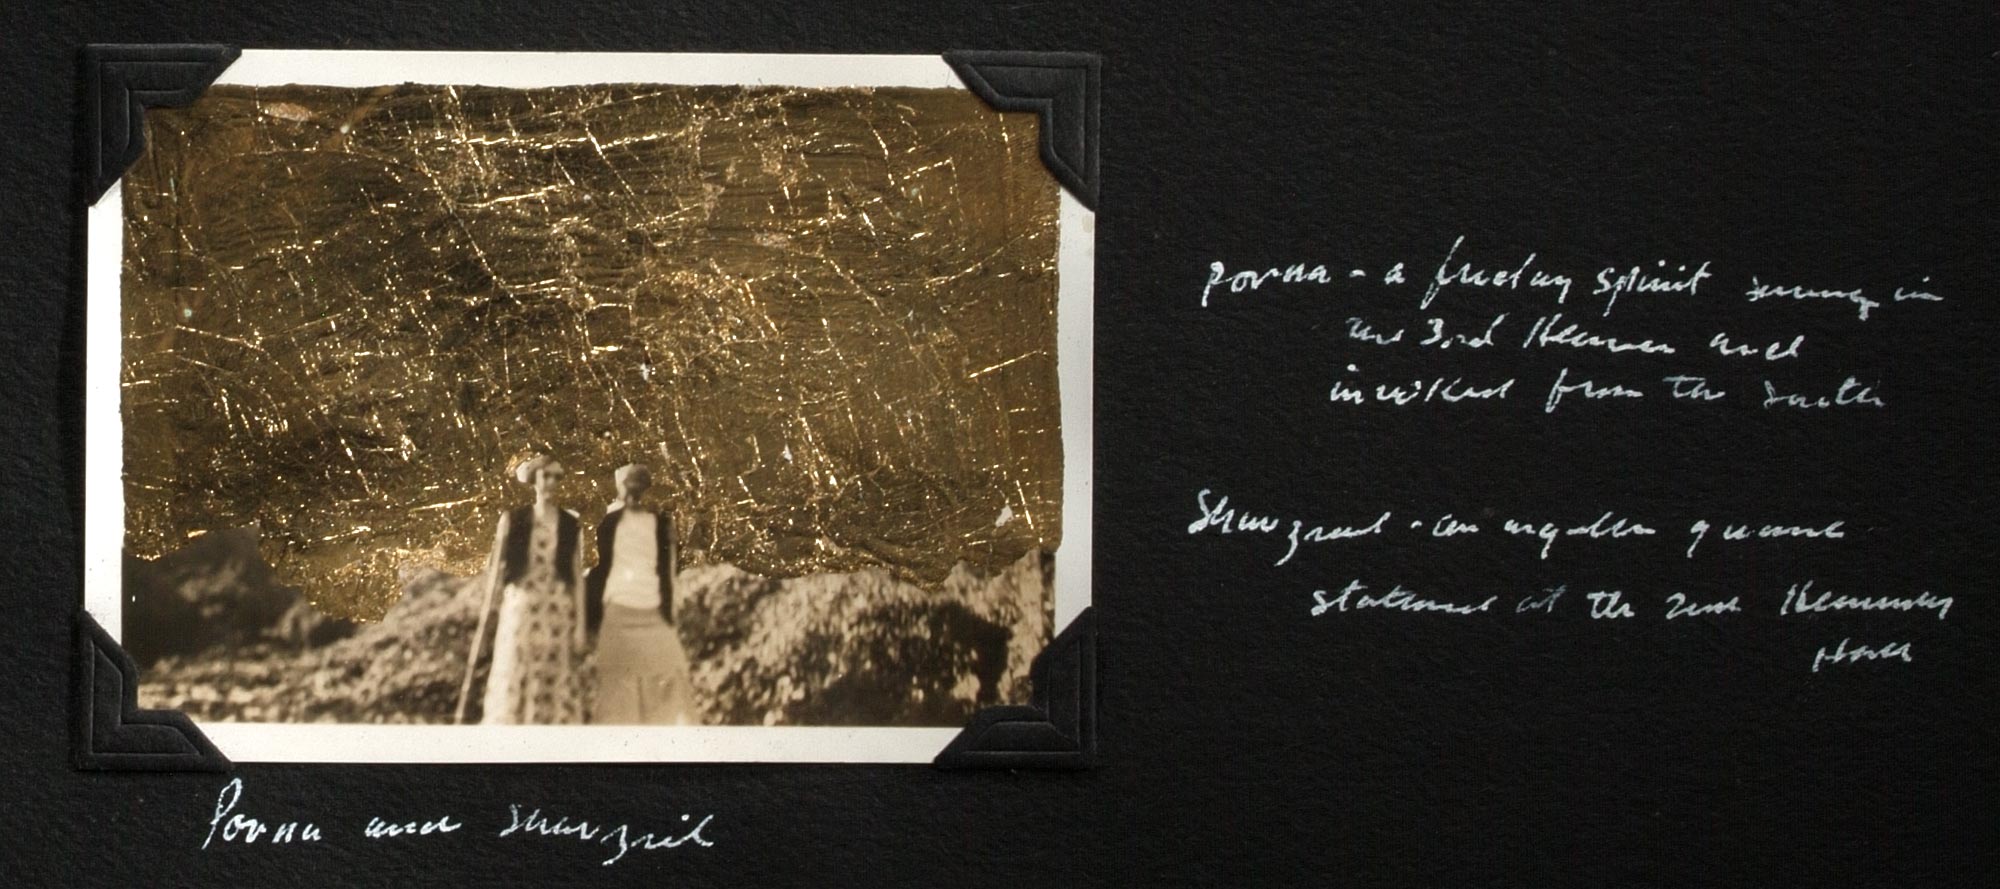 Porna and Shavzriel
Porna - a friday spirit serving in
the 3rd Heaven and
invoked from the South
- an angelic guard
stationed at the 2nd Heavenly
Hall